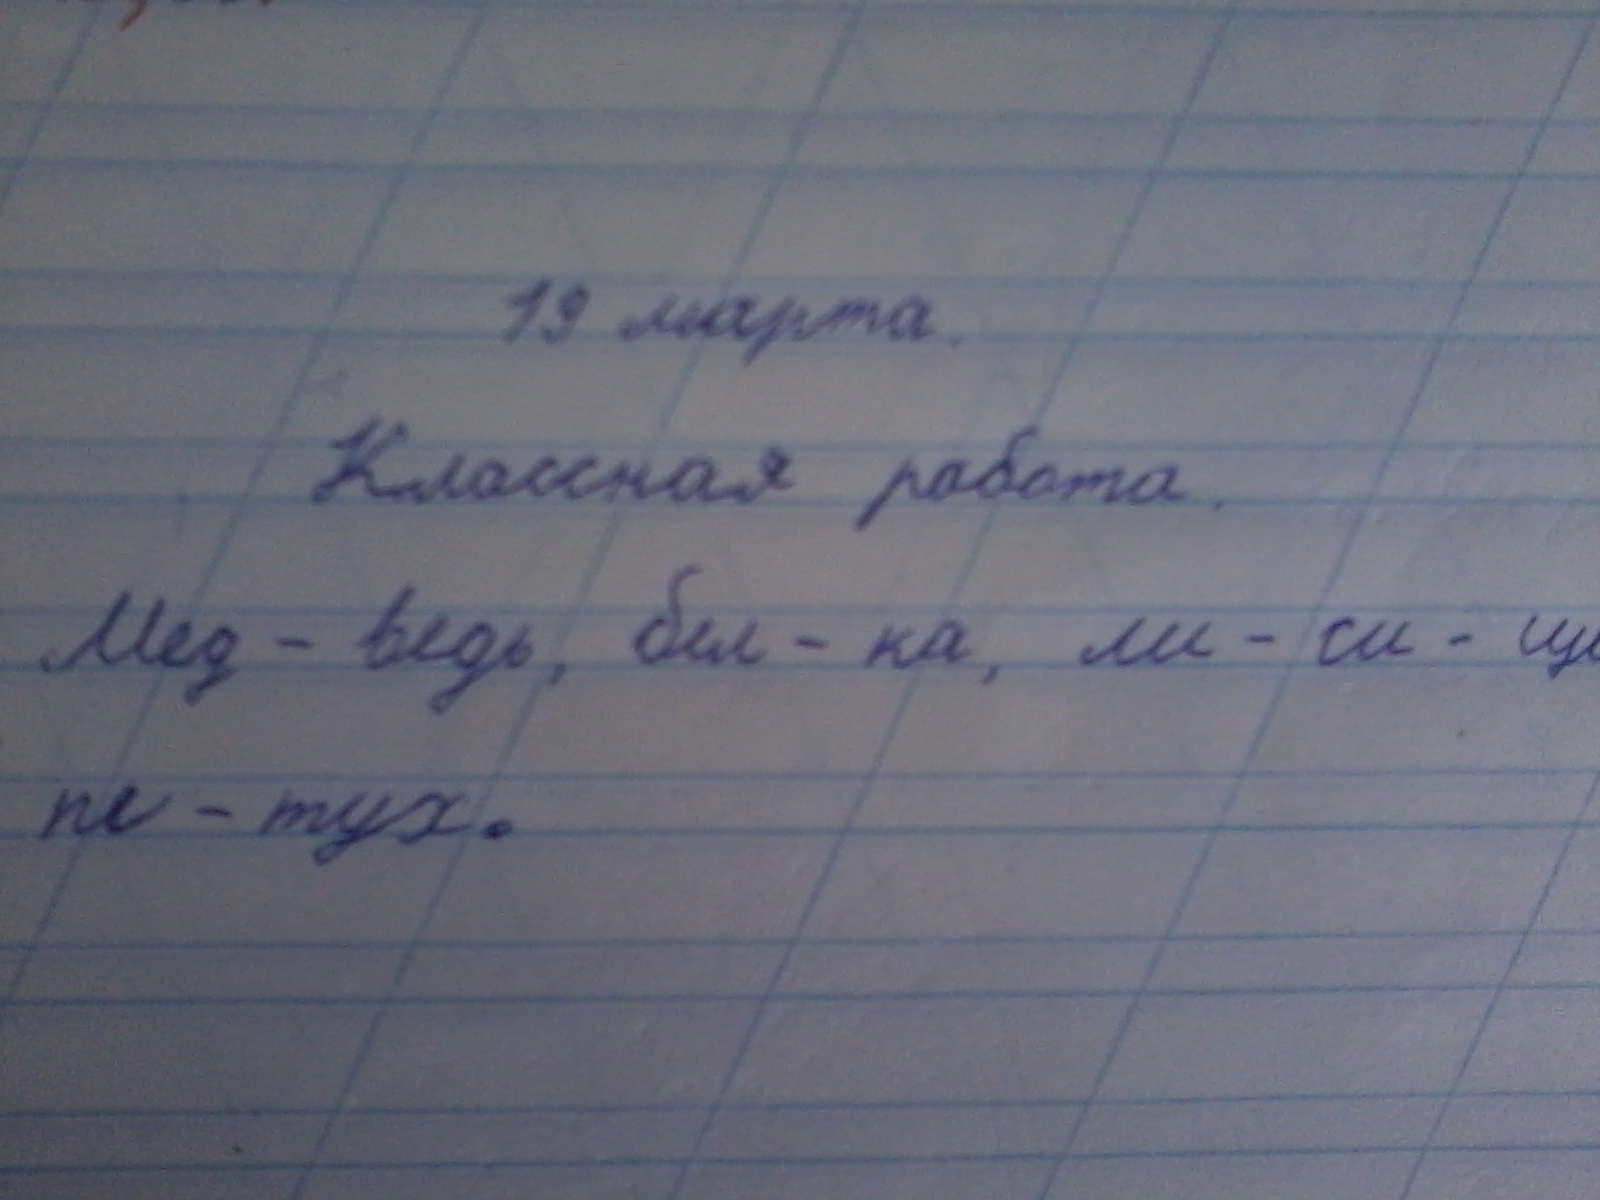 19 марта.
Классная работа.
Мед - ведь, бел - ка, ли - си - ц
пе - тух.